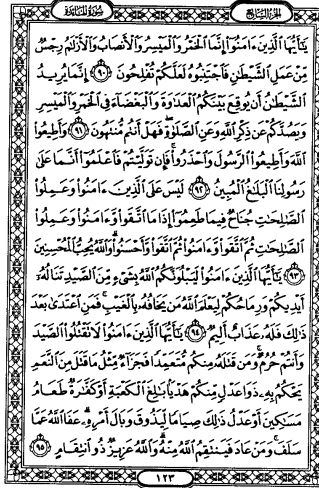 الجزء السابع
سورة المائدة
يَٰٓأَيُّهَا ٱلَّذِينَ ءَامَنُوٓا۟ إِنَّمَا ٱلْخَمْرُ وَٱلْمَيْسِرُ وَٱلْأَنصَابُ وَٱلْأَزْلَٰمُ رِجْسٌ
مِّنْ عَمَلِ ٱلشَّيْطَٰنِ فَٱجْتَنِبُوهُ لَعَلَّكُمْ تُفْلِحُونَ ٩٠ إِنَّمَا يُرِيدُ
ٱلشَّيْطَٰنُ أَن يُوقِعَ بَيْنَكُمُ ٱلْعَدَٰوَةَ وَٱلْبَغْضَآءَ فِى ٱلْخَمْرِ وَٱلْمَيْسِرِ
وَيَصُدَّكُمْ عَن ذِكْرِ ٱللَّهِ وَعَنِ ٱلصَّلَوٰةِ فَهَلْ أَنتُم مُّنتَهُونَ ٩١ وَأَطِيعُوا۟
ٱللَّهَ وَأَطِيعُوا۟ ٱلرَّسُولَ وَٱحْذَرُوا۟ فَإِن تَوَلَّيْتُمْ فَٱعْلَمُوٓا۟ أَنَّمَا عَلَىٰ
رَسُولِنَا ٱلْبَلَٰغُ ٱلْمُبِينُ ٩٢ لَيْسَ عَلَى ٱلَّذِينَ ءَامَنُوا۟ وَعَمِلُوا۟
ٱلصَّٰلِحَٰتِ جُنَاحٌ فِيمَا طَعِمُوٓا۟ إِذَا مَا ٱتَّقَوا۟ وَّءَامَنُوا۟ وَعَمِلُوا۟
ٱلصَّٰلِحَٰتِ ثُمَّ ٱتَّقَوا۟ وَّءَامَنُوا۟ ثُمَّ ٱتَّقَوا۟ وَّأَحْسَنُوا۟ وَٱللَّهُ يُحِبُّ ٱلْمُحْسِنِينَ
٩٣ يَٰٓأَيُّهَا ٱلَّذِينَ ءَامَنُوا۟ لَيَبْلُوَنَّكُمُ ٱللَّهُ بِشَىْءٍ مِّنَ ٱلصَّيْدِ تَنَالُهُۥٓ
أَيْدِيكُمْ وَرِمَاحُكُمْ لِيَعْلَمَ ٱللَّهُ مَن يَخَافُهُۥ بِٱلْغَيْبِ فَمَنِ ٱعْتَدَىٰ بَعْدَ
ذَٰلِكَ فَلَهُۥ عَذَابٌ أَلِيمٌ ٩٤ يَٰٓأَيُّهَا ٱلَّذِينَ ءَامَنُوا۟ لَا تَقْتُلُوا۟ ٱلصَّيْدَ
وَأَنتُمْ حُرُمٌ وَمَن قَتَلَهُۥ مِنكُم مُّتَعَمِّدًا فَجَزَآءٌ مِّثْلُ مَا قَتَلَ مِنَ ٱلنَّعَمِ
يَحْكُمُ بِهِۦ ذَوَا عَدْلٍ مِّنكُمْ هَدْيًۢا بَٰلِغَ ٱلْكَعْبَةِ أَوْ كَفَّٰرَةٌ طَعَامُ
مَسَٰكِينَ أَوْ عَدْلُ ذَٰلِكَ صِيَامًا لِّيَذُوقَ وَبَالَ أَمْرِهِۦ عَفَا ٱللَّهُ عَمَّا
سَلَفَ وَمَنْ عَادَ فَيَنتَقِمُ ٱللَّهُ مِنْهُ وَٱللَّهُ عَزِيزٌ ذُو ٱنتِقَامٍ ٩٥
١٢٣